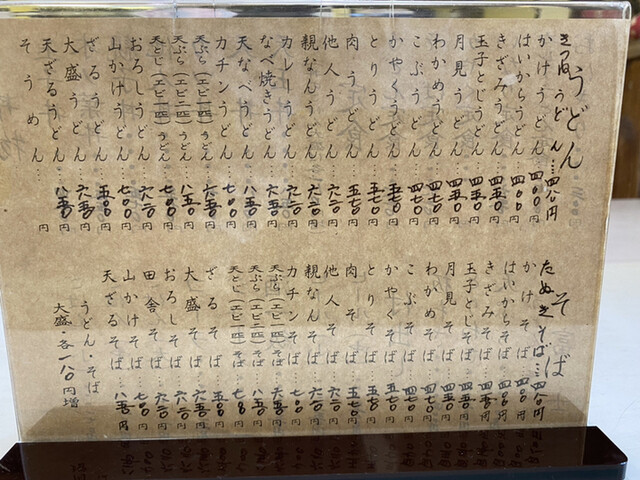 うどん
きつねうどん…四八〇円
かけうどん…四〇〇円
はいからうどん…四〇〇円
きざみうどん…四五〇円
玉子とじうどん…四五〇円
月見うどん…四五〇円
わかめうどん…四七〇円
こぶうどん…四七〇円
かやくうどん…五七〇円
とりうどん…五七〇円
肉うどん…五七〇円
他人うどん…六二〇円
親なんうどん…六二〇円
カレーうどん…六二〇円
なべ焼きうどん…六五〇円
天なべうどん…八五〇円
カチンうどん…七〇〇円
天ぷら(エビ一匹)うどん…六五〇円
天ぷら(エビ二匹)うどん…八五〇円
天とじ(エビ一匹)うどん…七〇〇円
おろしうどん…六二〇円
山かけうどん…七〇〇円
ざるうどん…五〇〇円
大盛うどん…六五〇円
天ざるうどん…八五〇円
そうめん…円
そば
たぬきそば…四八〇円
かけそば…四〇〇円
はいからそば…四〇〇円
きざみそば…四五〇円
玉子とじそば…四五〇円
月見そば…四五〇円
わかめそば…四七〇円
こぶそば…四七〇円
かやくそば…五七〇円
とりそば…五七〇円
肉そば…五七〇円
他人そば…六二〇円
親なんそば…六二〇円
カチンそば…六二〇円
天ぷら(エビ一匹)そば…六五〇円
天ぷら(エビ二匹)そば…八五〇円
天とじ(エビ一匹)そば…七〇〇円
ざるそば…五〇〇円
大盛そば…六五〇円
おろしそば…六二〇円
田舎そば…六二〇円
山かけそば…七〇〇円
天ざるそば…八五〇円
うどん・そば
大盛・各一八〇円増